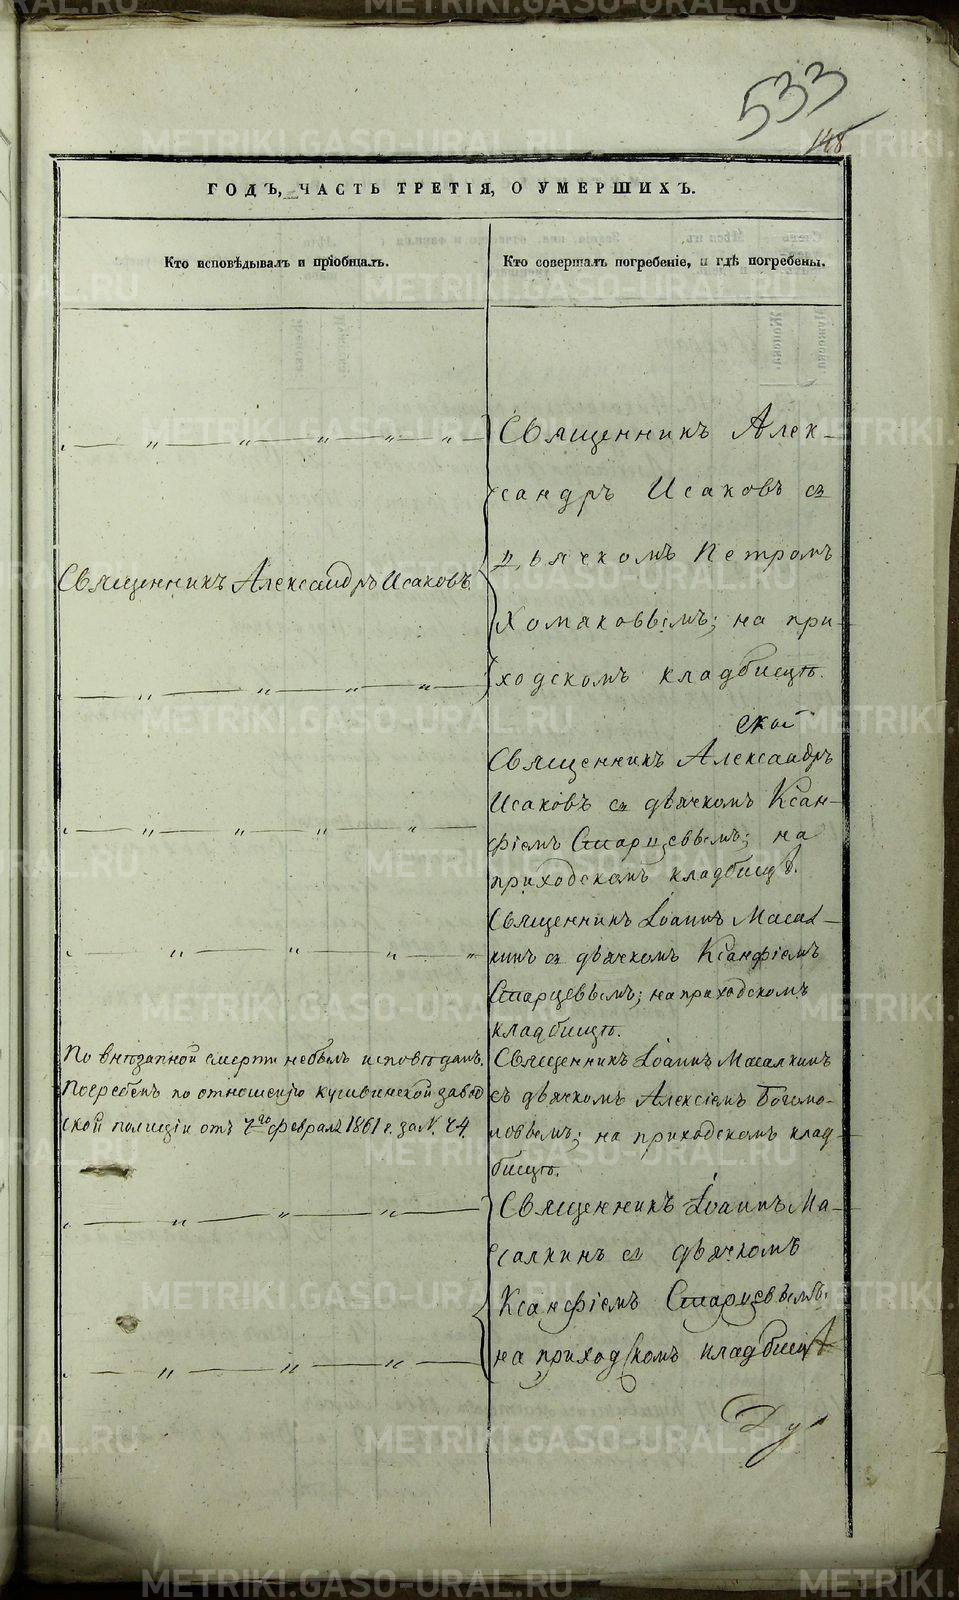 533
148
ГОДЪ, ЧАСТЬ ТРЕТІЯ, О УМЕРШИХЪ.
Кто исповѣдывалъ и пріобщалъ.
Кто совершалъ погребеніе, и гдѣ погребены.
„ — „ — „ — „ — „ — „
Священникъ Алек-
сандръ Исаковъ съ
дьячкомъ Петромъ
Хомяковымъ; на при-
ходскомъ кладбищѣ.
Священникъ Александръ Исаковъ.
„ — „ — „ — „ — „
ской
Священникъ Александръ
Исаковъ съ дьячкомъ Ксан-
фіемъ Старцевымъ; на
приходскомъ кладбищѣ.
„ — „ — „ — „ — „
Священникъ Іоаннъ Масал-
кинъ съ дьячкомъ Ксанфіемъ
Старцевымъ; на приходскомъ
кладбищѣ.
„ — „ — „ — „ — „
По внѣзапной смерти небылъ исповѣданъ.
Погребенъ по отношенію кушвинской завод
ской полиціи отъ 7го февраля 1861 г. за N. 74.
Священникъ Іоаннъ Масалкинъ
съ дьячкомъ Алексіемъ Богомо-
ловымъ; на приходскомъ клад-
бищѣ.
„ — „ — „ — „
Священникъ Іоаннъ Ма-
салкинъ съ дьячкомъ
Ксанфіемъ Старцевымъ;
на приходскомъ кладбищѣ
„ — „ — „ — „
METRIKI.GASO-URAL.RU